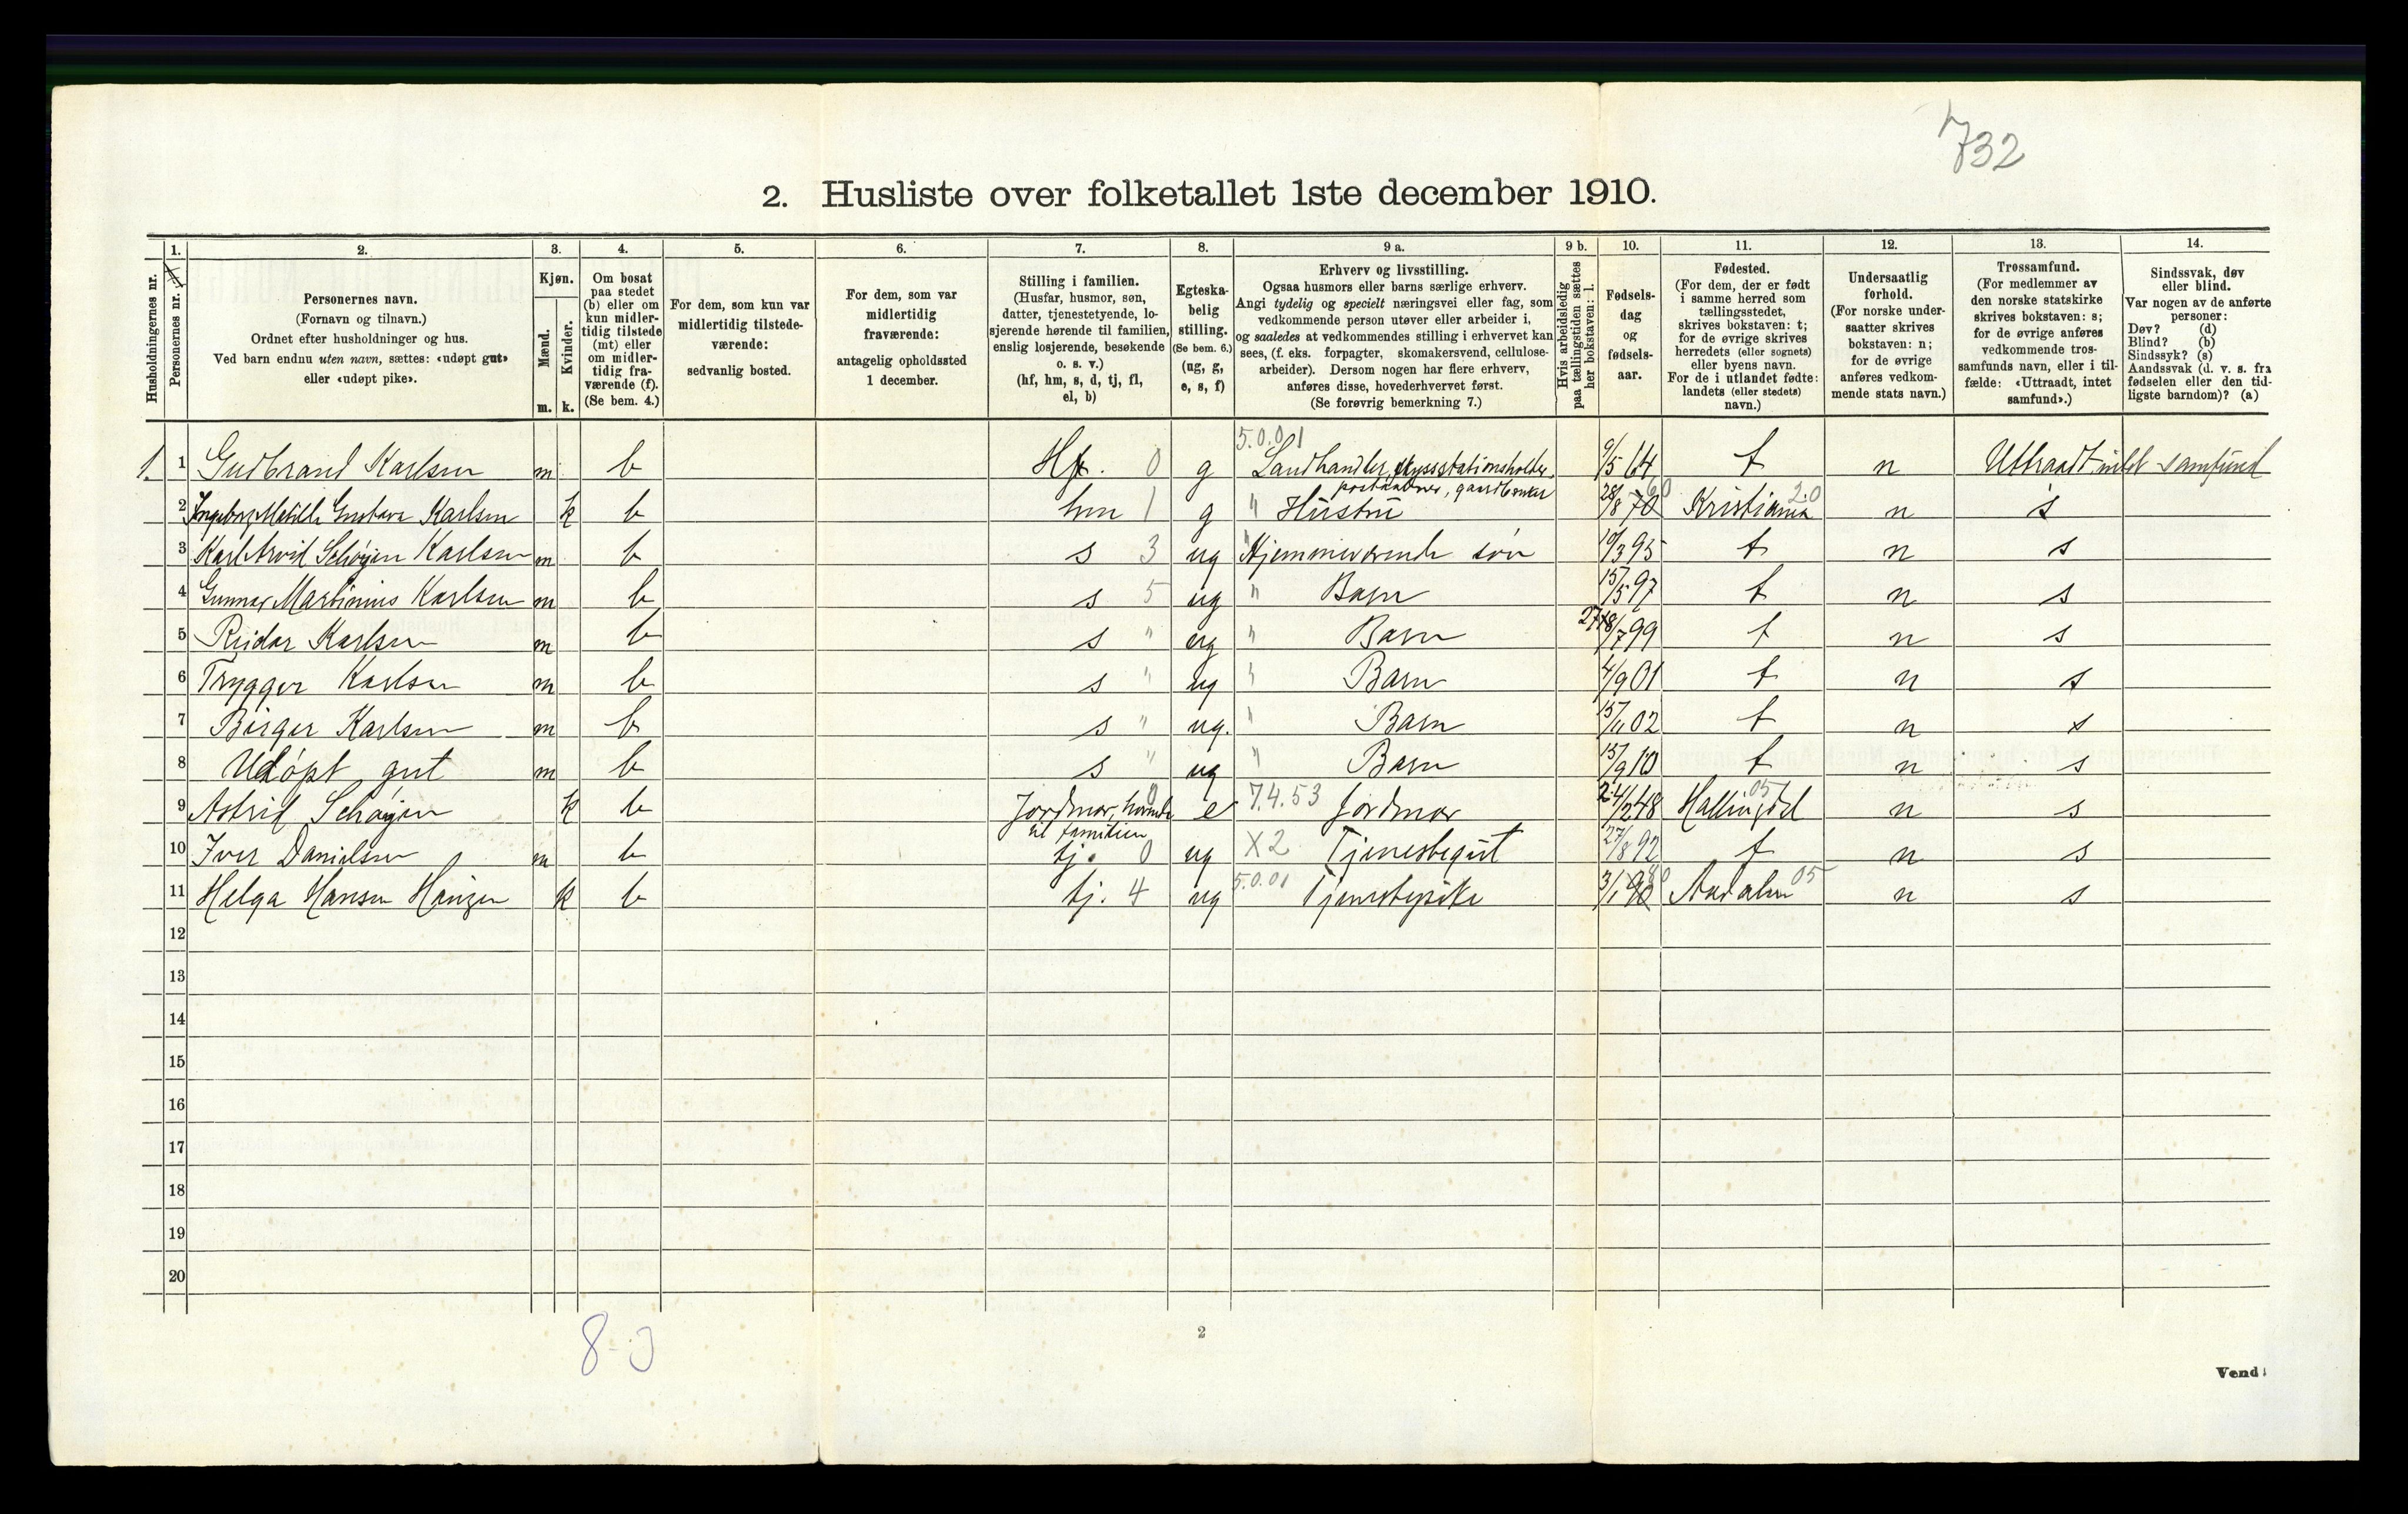 732
2. Husliste over folketallet 1ste december 1910.
Husholdningernes nr.
1.
Personernes nr.
2.
Personernes navn.
(Fornavn og tilnavn.)
Ordnet efter husholdninger og hus.
Ved barn endnu uten navn, sættes: «udøpt gut»
eller «udøpt pike».
3.
Kjøn.
Mænd.
Kvinder.
m. k.
4.
Om bosat
paa stedet
(b) eller om
kun midler-
tidig tilstede
(mt) eller
om midler-
tidig fra-
værende (f).
(Se bem. 4.)
5.
For dem, som kun var
midlertidig tilstede-
værende:
sedvanlig bosted.
6.
For dem, som var
midlertidig
fraværende:
antagelig opholdssted
1 december.
7.
Stilling i familien.
(Husfar, husmor, søn,
datter, tjenestetyende, lo-
sjerende hørende til familien,
enslig losjerende, besøkende
o. s. v.)
(hf, hm, s, d, tj, fl,
el, b)
8.
Egteska-
belig
stilling.
(Se bem. 6.)
(ug, g,
e, s, f)
9 a.
Erhverv og livsstilling.
Ogsaa husmors eller barns særlige erhverv.
Angi tydelig og specielt næringsvei eller fag, som
vedkommende person utøver eller arbeider i,
og saaledes at vedkommendes stilling i erhvervet kan
sees, (f. eks. forpagter, skomakersvend, cellulose-
arbeider). Dersom nogen har flere erhverv,
anføres disse, hovederhvervet først.
(Se forøvrig bemerkning 7.)
9 b.
Hvis arbeidsledig
paa tællingstiden sættes
her bokstaven: l.
10.
Fødsels-
dag
og
fødsels-
aar.
11.
Fødested.
(For dem, der er født
i samme herred som
tællingsstedet,
skrives bokstaven: t;
for de øvrige skrives
herredets (eller sognets)
eller byens navn.
For de i utlandet fødte:
landets (eller stedets)
navn.)
12.
Undersaatlig
forhold.
(For norske under-
saatter skrives
bokstaven: n;
for de øvrige
anføres vedkom-
mende stats navn.)
13.
Trossamfund.
(For medlemmer av
den norske statskirke
skrives bokstaven: s;
for de øvrige anføres
vedkommende tros-
samfunds navn, eller i til-
fælde: «Uttraadt, intet
samfund».)
14.
Sindssvak, døv
eller blind.
Var nogen av de anførte
personer:
Døv? (d)
Blind? (b)
Sindssyk? (s)
Aandssvak (d. v. s. fra
fødselen eller den tid-
ligste barndom)? (a)
5.0.01
1. 1 Gudbrand Karlsen m b Hf. 0 g Landhandler, skysstationsholder, 9/5 64 t n Uttraadt intet samfund
postaabner, gaardbruker
2 Ingeborg Matilde Gustava Karlsen k b hm 1 g " Hustru 28/8 70 60 Kristiania 20 n s
3 Karl Arvid Schøyen Karlsen m b s 3 ug " Hjemmeværende søn 10/3 95 t n s
4 Gunnar Martinius Karlsen m b s 5 ug " Barn 15/5 97 t n s
5 Reidar Karlsen m b s " ug " Barn 27/7 99 t n s
6 Trygger Karlsen m b s " ug " Barn 4/9 01 t n s
7 Birger Karlsen m b s " ug. " Barn 15/11 02 t n s
8 Udøpt gut m b s " ug " Barn 15/9 10 t n s
9 Astrid Schøyen k b Jordmor, hørende 0 e 7.4.53 Jordmor 24/2 48 Hallingdal 05 n s
til familien
10 Iver Danielsen m b tj. 0 ug X2 Tjenestegut 27/8 92 t n s
11 Helga Hansen k b tj. 4 ug 5.0.01 Tjenestepike 3/1 90 80 Aadalen 05 n s
12
13
14
15
16
17
18
19
20
8-3
2
Vend!